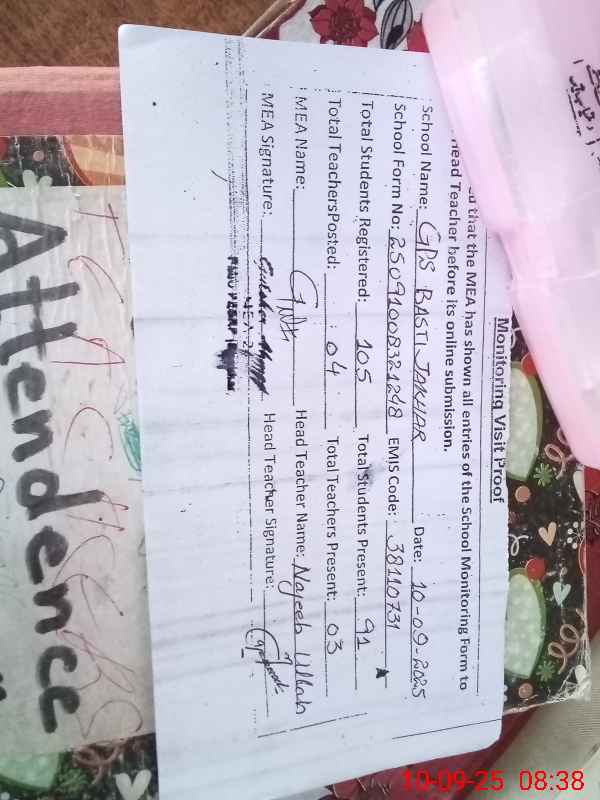 Monitoring Visit Proof
ed that the MEA has shown all entries of the School Monitoring Form to
Head Teacher before its online submission.
School Name: GPS BASTI JAKHAR Date: 10-09-2025
School Form No: EMIS Code: 38110731
Total Students Registered: 105 Total Students Present: 91
Total TeachersPosted: 04 Total Teachers Present: 03
MEA Name: Head Teacher Name: Najeeb Ullah
MEA Signature: Head Teacher Signature:
TEACHERS
Attendence
10-09-25 08:38